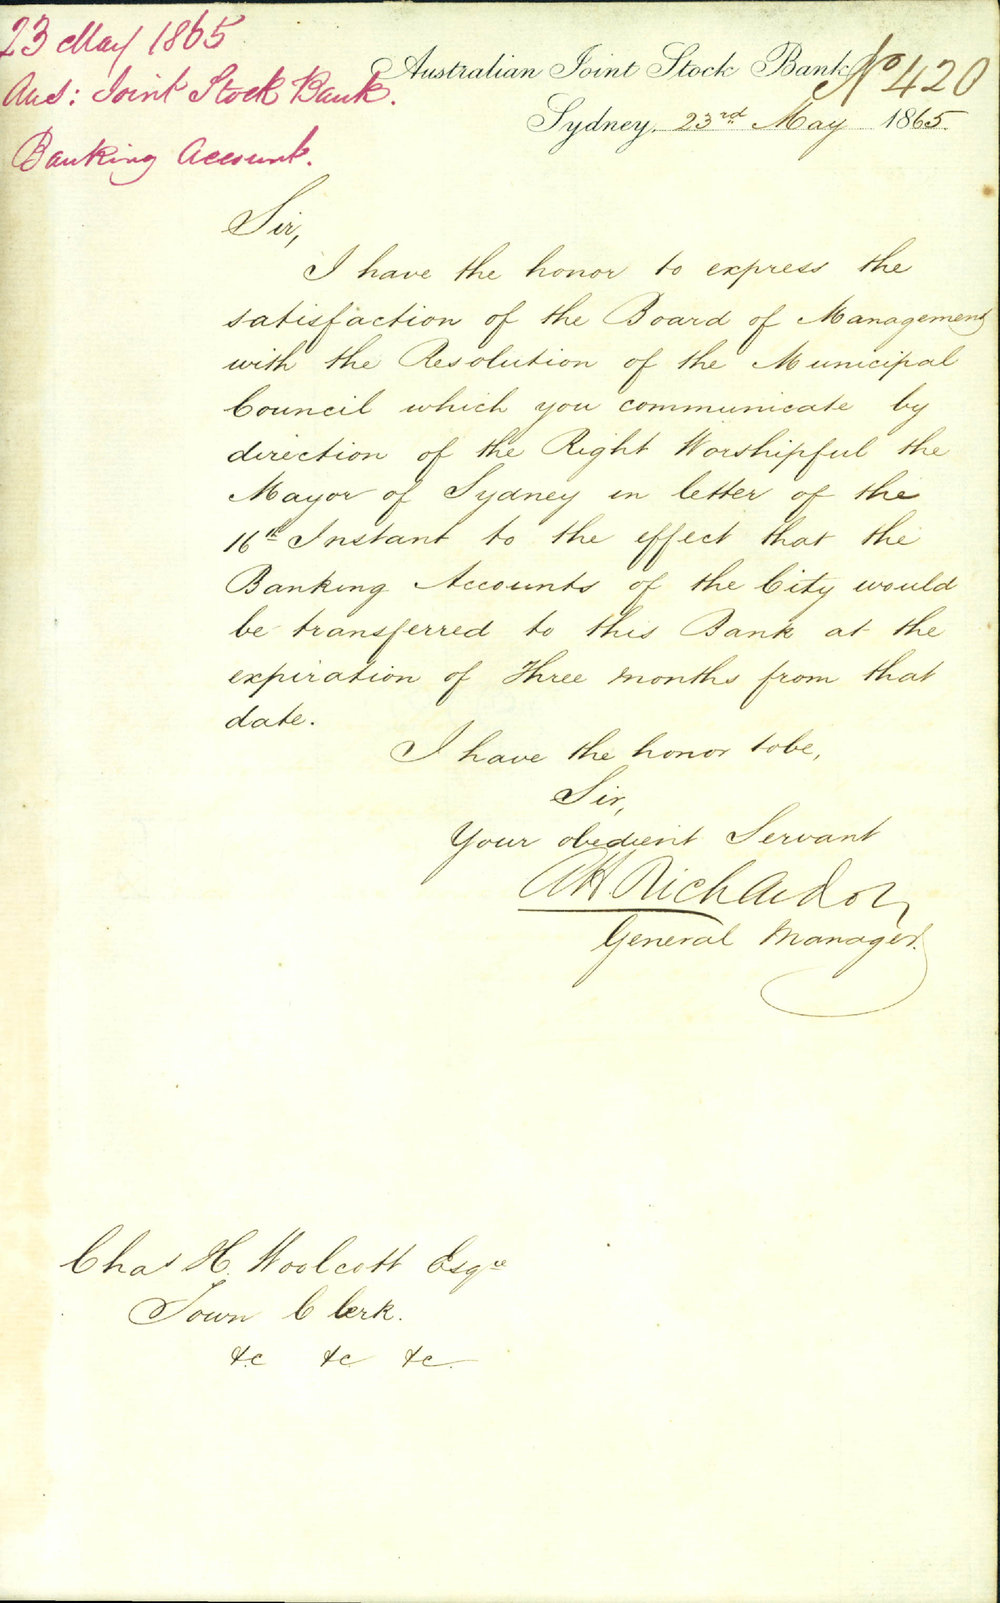 23 May 1865
Aus: Joint Stock Bank.
Banking Account.
Australian Joint Stock Bank
No 420
Sydney, 23rd May 1865.
Sir,
I have the honor to express the
satisfaction of the Board of Management
with the Resolution of the Municipal
Council which you communicate by
direction of the Right Worshipful the
Mayor of Sydney in letter of the
16th Instant to the effect that the
Banking Accounts of the City would
be transferred to this Bank at the
expiration of three months from that
date.
I have the honor to be,
Sir,
Your obedient Servant
AH Richardson
General Manager.
Chas H. Woolcott Esqre
Town Clerk.
&c &c &c